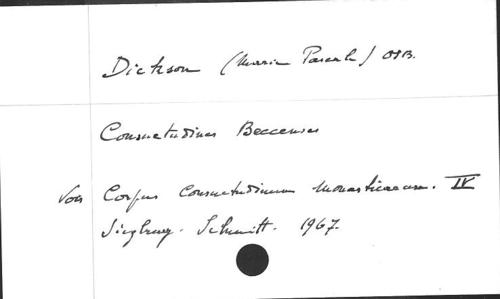 Dickson (Marie Pascal) OSB.
Consuetudines Beccenses
Voir Corpus Consuetudinum Monasticarum. IV
Siegburg. Schmitt. 1967.